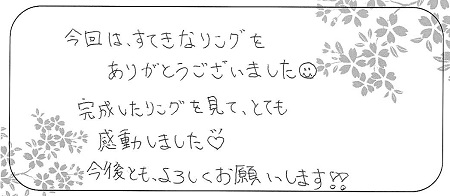 今回は、すてきなリングを
ありがとうございました☺
完成したリングを見て、とても
感動しました♡
今後とも、よろしくお願いします!!